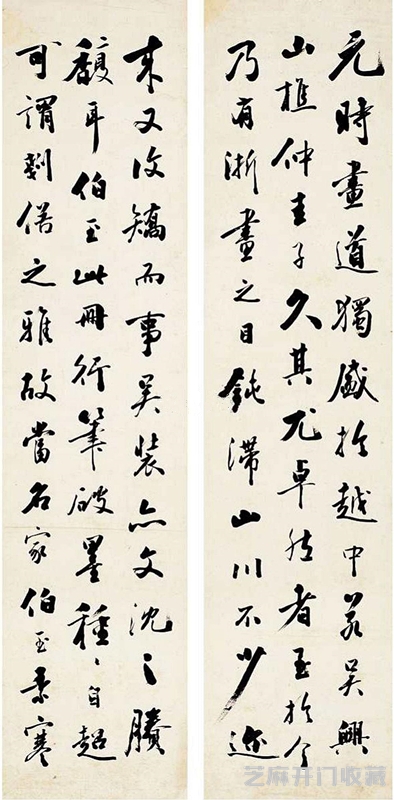 元時畫道獨盛於越中若吳興
山樵仲圭子久其尤卓然者至於今
乃有浙畫之目鈍滯山川不少邇
來又復矯而事吳裝亦文沈之賸
馥耳伯玉此冊行筆破墨種種自超
可謂剗俗之雅故當名家伯玉素寒
芝麻开门收藏